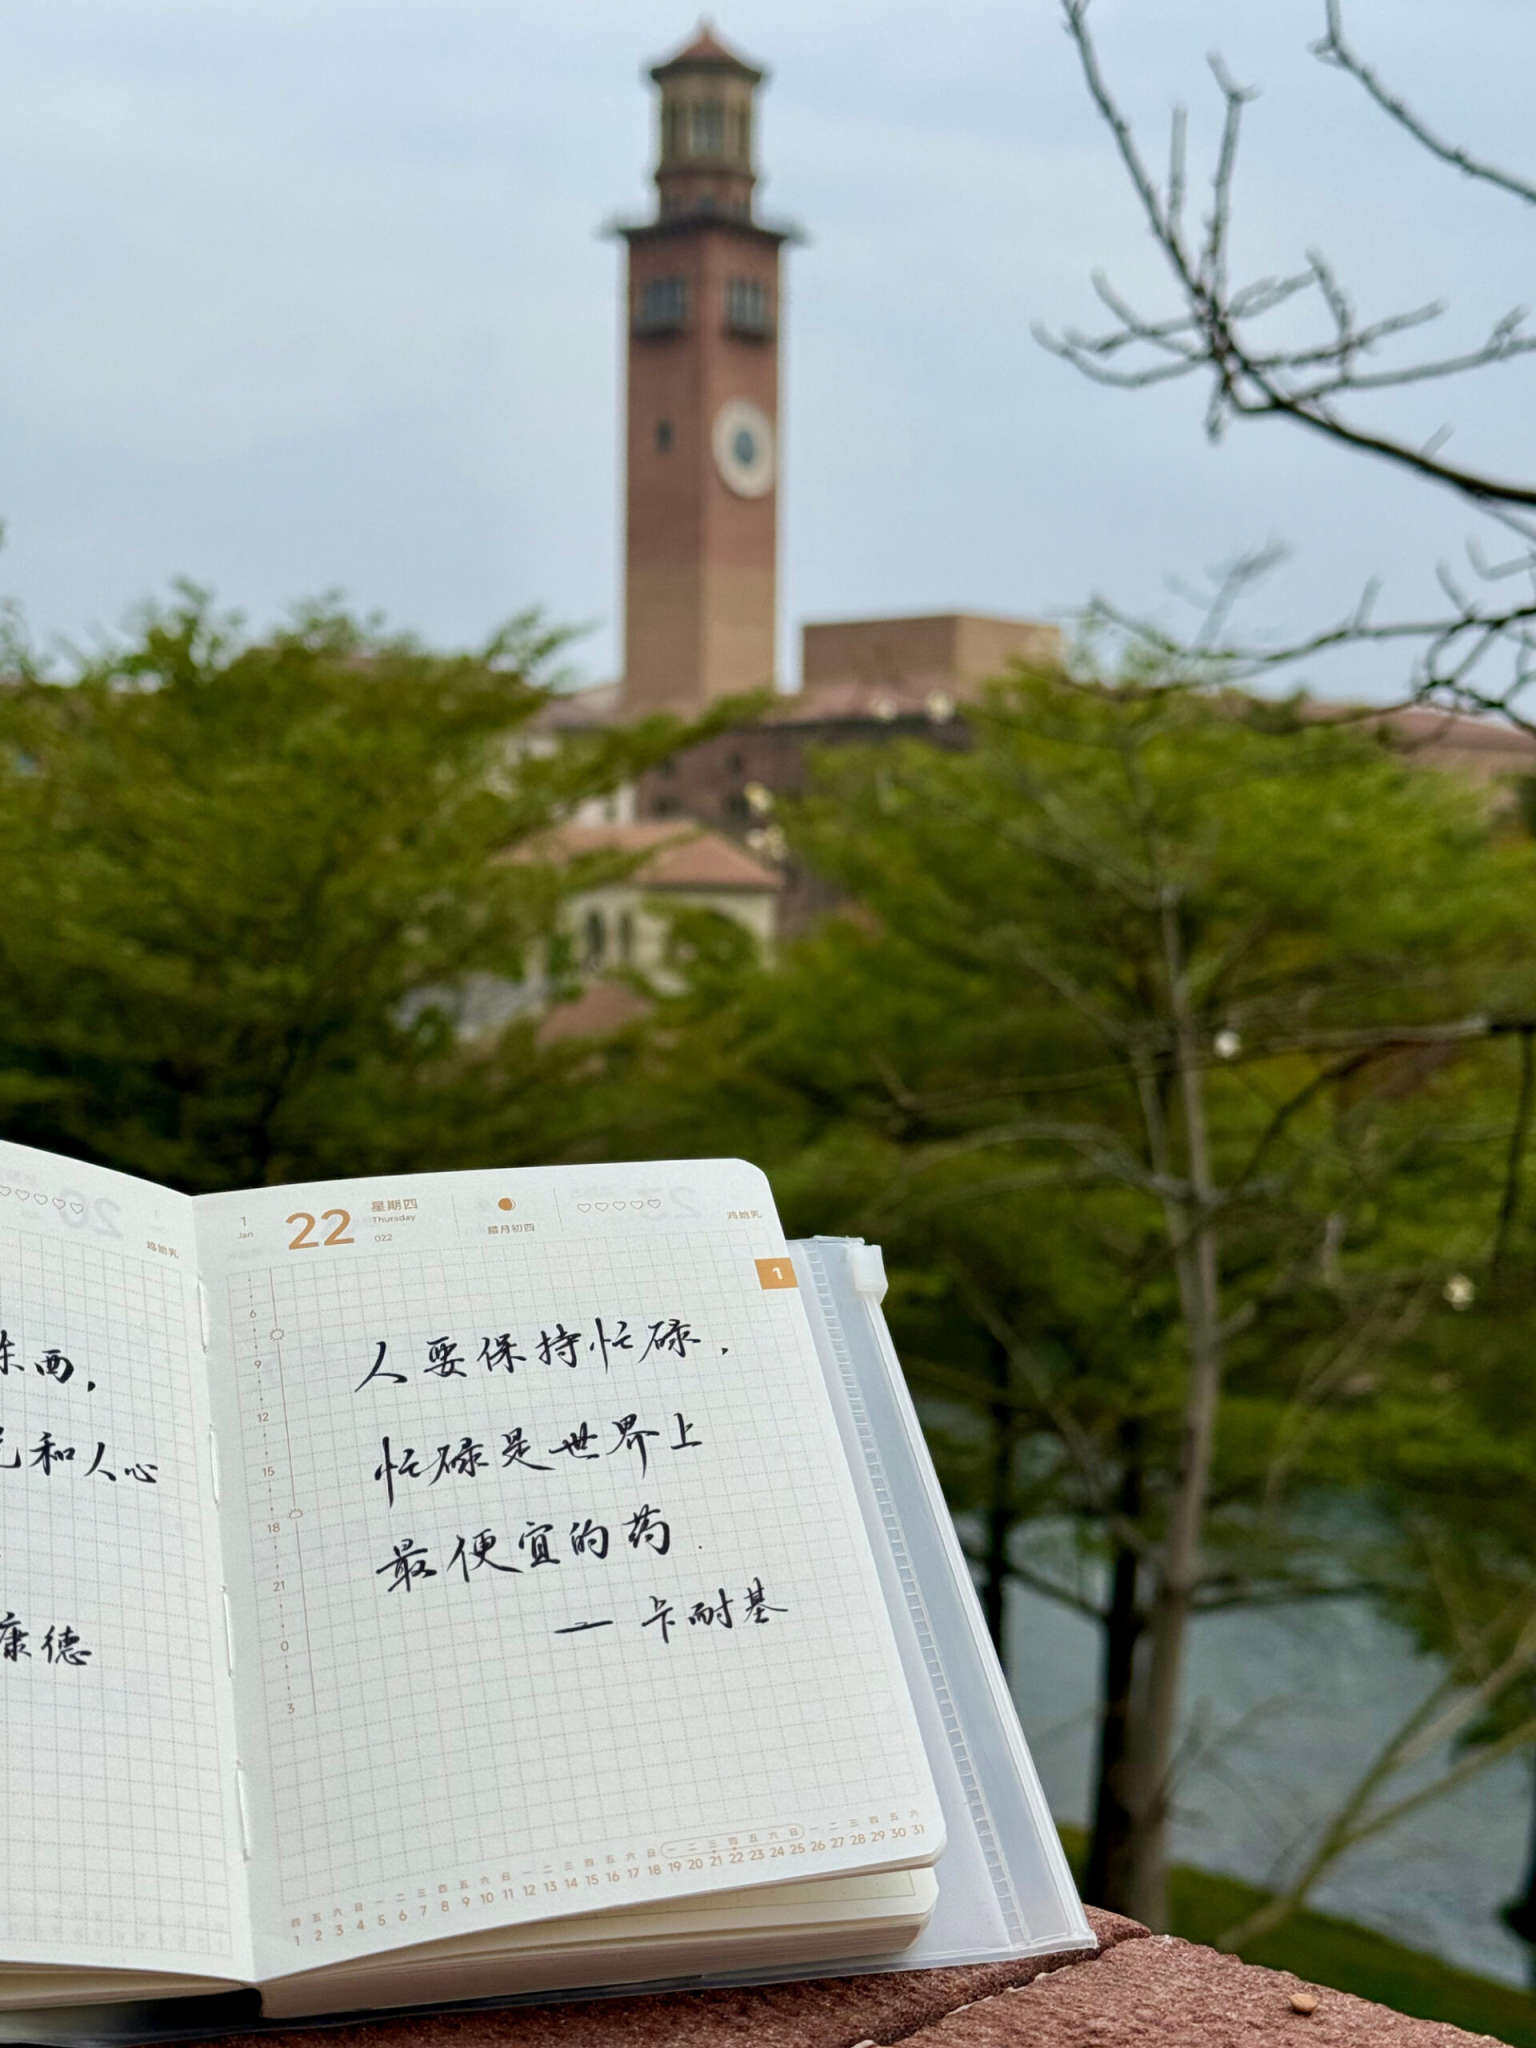 东西,
和人心
康德
1
Jan
22
星期四
Thursday
022
腊月初四
鸡始乳
1
人要保持忙碌,
忙碌是世界上
最便宜的药.
— 卡耐基
6
9
12
15
18
21
0
3
四 五 六 日 一 二 三 四 五 六 日 一 二 三 四 五 六 日 一 二 三 四 五 六 日 一 二 三 四 五 六
1 2 3 4 5 6 7 8 9 10 11 12 13 14 15 16 17 18 19 20 21 22 23 24 25 26 27 28 29 30 31